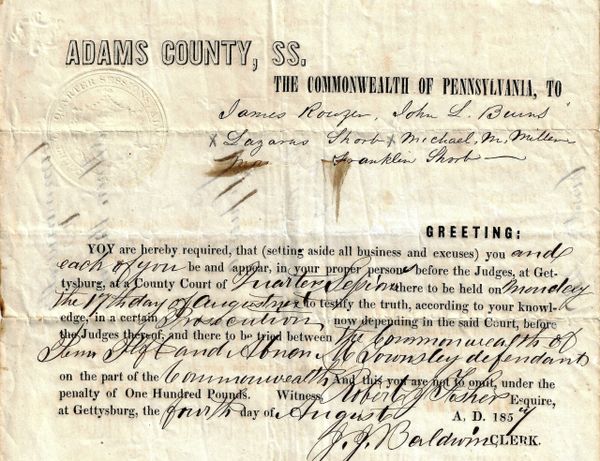 ADAMS COUNTY, SS.
THE COMMONWEALTH OF PENNSYLVANIA, TO
James Rouzer, John L. Burns
x Lazarus Shorb x Michael M. Miller
Franklin Shorb
GREETING:
YOY are hereby required, that (setting aside all business and excuses) you and
each of you be and appear, in your proper persons before the Judges, at Get-
tysburg, at a County Court of Quarter Sessions there to be held on Monday
the 17th day of August next to testify the truth, according to your knowl-
edge, in a certain Prosecution now depending in the said Court, before
the Judges thereof, and there to be tried between the Commonwealth of
Penn Plff and Abner M Townsley defendant
on the part of the Commonwealth And this you are not to omit, under the
penalty of One Hundred Pounds. Witness Robert J Fisher Esquire,
at Gettysburg, the fourth day of August A, D. 1857
J. J. Baldwin, CLERK.